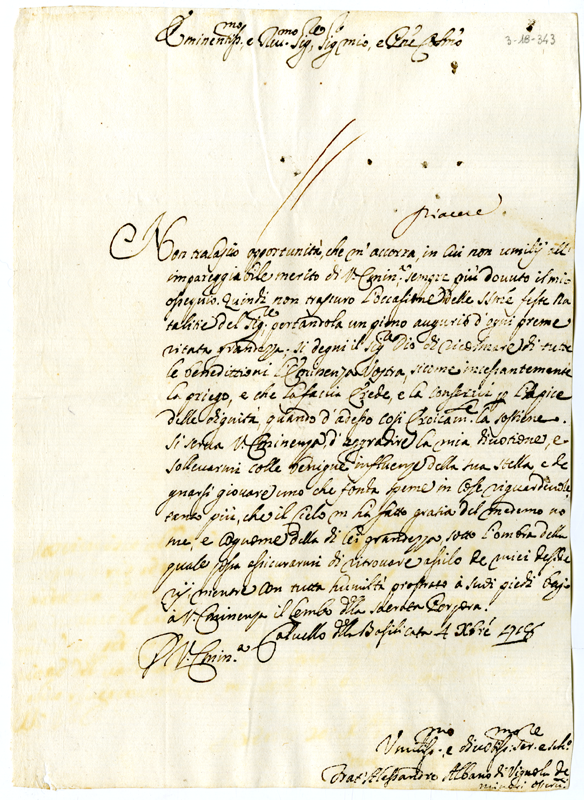 Eminentiss.mo e Rev.mo Sig.re Sig.r mio, e Pne
3-18-343
piacere
Non tralascio opportunità, che m'accorra, in cui non umilij all'
impareggiabile merito di V. Emin.za sempre più dovuto il mio
ossequio. Quindi non trascuro l'occasione delle feste Na
talitie del Sig.re portandola un pieno augurio d'ogni preme
ditata grandezza; si degni il Sig.re Dio di di tutte
le benedittioni l'Eminenza Vostra, siccome incessantemente
la priego, e che la faccia Erede, e la conservi l'apice
delle dignità, quando d'adesso così la sostiene.
Si serva V. Eminenza d'aggradire la mia divotione, e
sollevarmi colle benigne influenze della sua stella, e de
gnarsi giovare uno che fonda speme in
tanto più, che il cielo m'ha fatto gratia del medemo no
me, e cognome della di lei grandezza, sotto l'ombra della
quale assicurarmi di ritrovare asilo de miei
mentre con tutta humiltà prostrato à suoi piedi bagio
à V. Eminenza il lembo della Porpora.
Calvello della Basilicata 4 Xbre
D V. Emin.a
e divotiss. ser. e
Frat' Alessandro Albano di Vignola de
minori osserv.